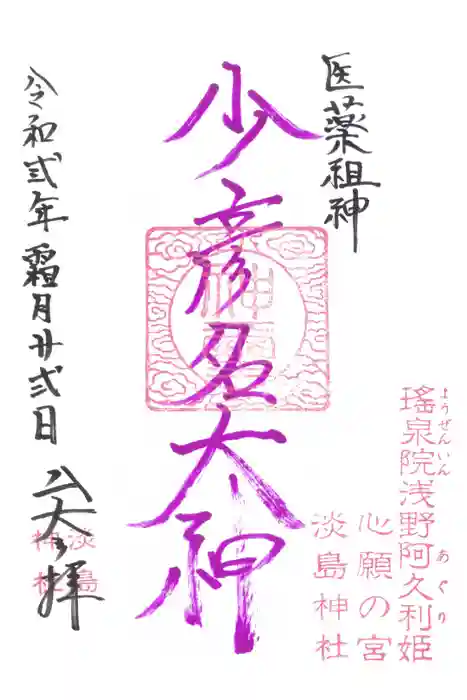 医薬祖神
少彦名大神
瑤泉院浅野阿久利姫
ようぜんいん
あぐり
心願の宮
淡島神社
令和弐年霜月廿弐日
淡島
神社